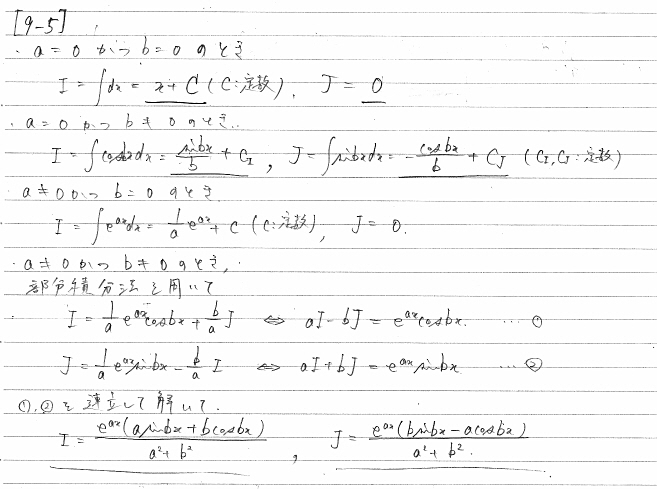 [9-5]
・a = 0 かつ b = 0 のとき
I = ∫dx = x + C (C:定数), J = 0
・a = 0 かつ b ≠ 0 のとき.
I = ∫cosbxdx = sinbx/b + C_I , J = ∫sinbxdx = -cosbx/b + C_J (C_I, C_J : 定数)
・a ≠ 0 かつ b = 0 のとき
I = ∫e^{ax}dx = 1/a e^{ax} + C (C:定数), J = 0.
・a ≠ 0 かつ b ≠ 0 のとき,
部分積分法を用いて
I = 1/a e^{ax}cosbx + b/a J ⇔ aI - bJ = e^{ax}cosbx. … ①
J = 1/a e^{ax}sinbx - b/a I ⇔ aI + bJ = e^{ax}sinbx … ②
①,②を連立して解いて.
I = e^{ax}(asinbx + bcosbx)/a² + b² , J = e^{ax}(bsinbx - acosbx)/a² + b².